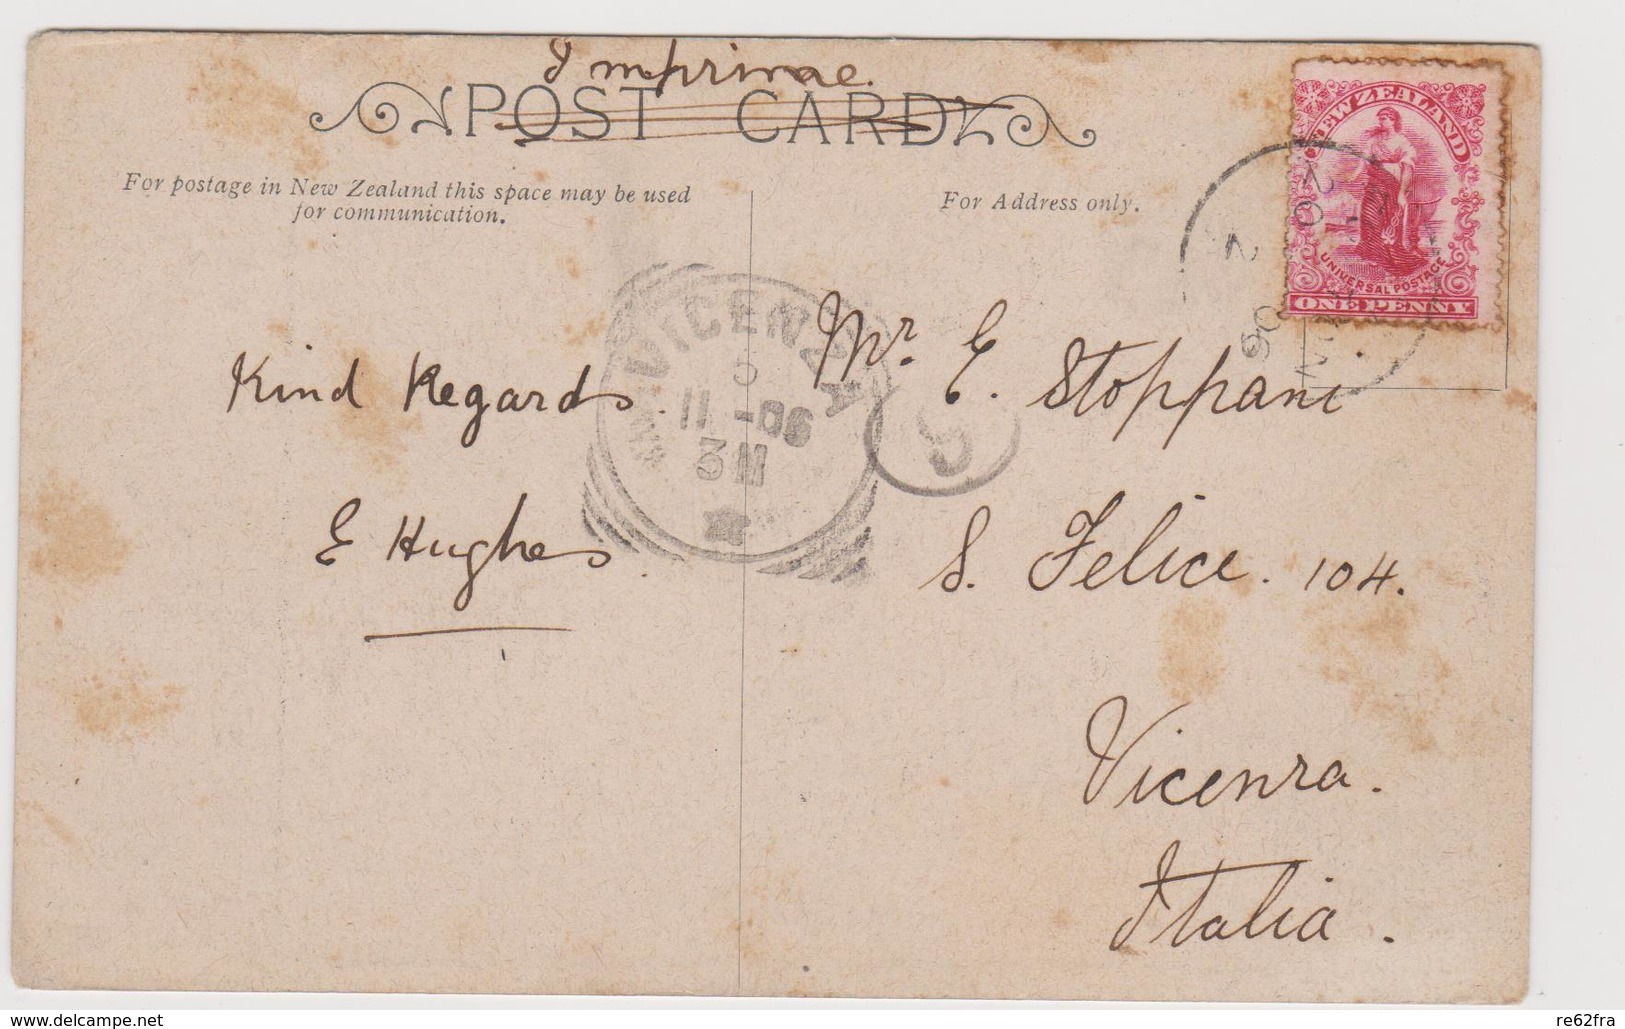 Imprimae.
POST CARD
For postage in New Zealand this space may be used
for communication.
For Address only.
NEW ZEALAND
UNIVERSAL POSTAGE
ONE PENNY
06
VICENZA
11-06
Kind Regards.
E Hughes.
Mr. E. Stoppani
S. Felice. 104.
Vicenza.
Italia.
delcampe.net
re62fra